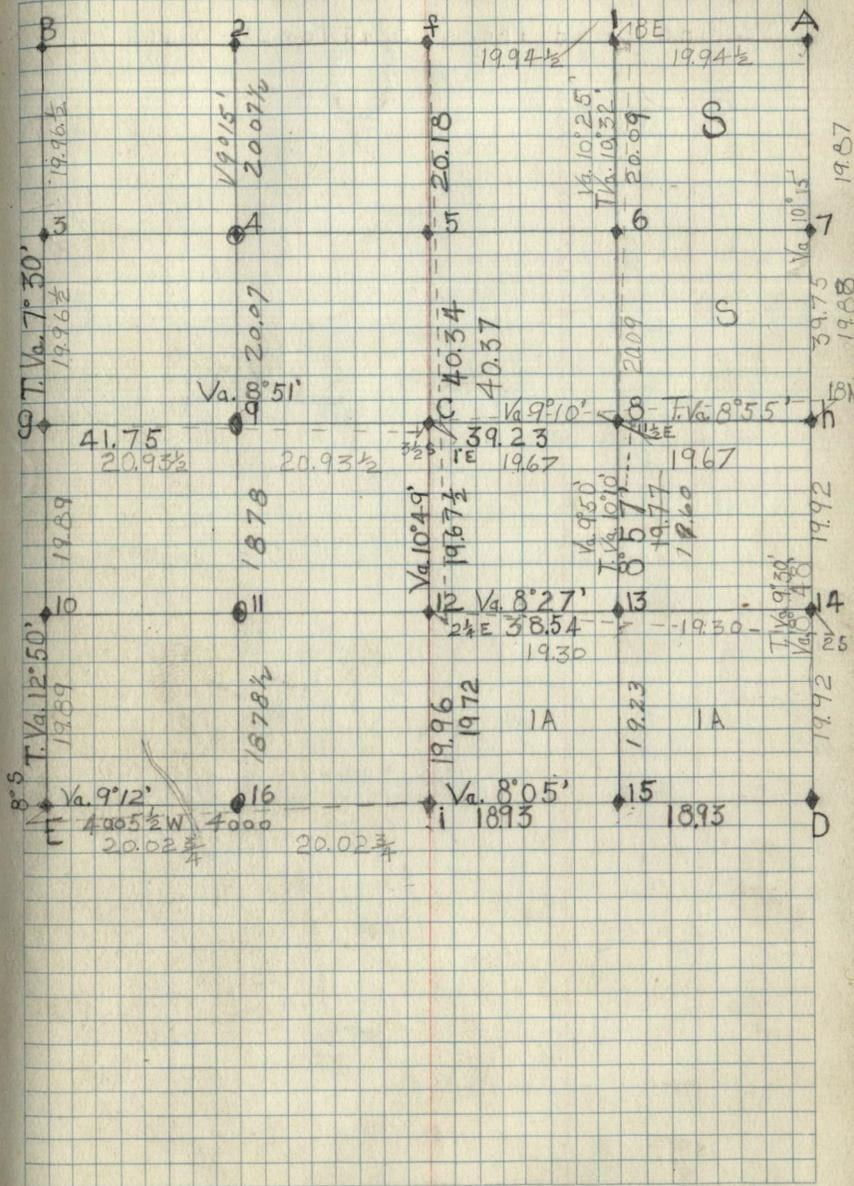 B 2 + 1 18E A
19.94½ 19.94½
19.96.½
V9°15'
2007½
20.18
Va. 10°25'
T.Va. 10°32'
20.09
S
19.87
Va 10°15'
3 4 5 6 7
T. Va. 7°30'
19.96½
20.07
40.34
40.37
2009
S
39.75
19.88
Va. 8°51'
9 C Va 9°10' 8 T.Va 8°55' h
18N
41.75 3½S 1E 39.23 11½E
20.93½ 20.93½ 19.67 19.67
19.89
1878
Va 10°49'
19.67½
Va. 9°50'
T.Va. 10°10'
8°57'
19.77
19.92
10 11 12 Va. 8°27' 13 14
T. Va 9°30'
2¼E 38.54 19.30 2S
19.30
T. Va. 12°50'
19.89
1878½
19.96
1972
1A
19.23
1A
19.92
8°S
Va. 9°12' 16 Va. 8°05' 15
E 4005½W 4000 i 1893 1893 D
20.02¾ 20.02¾